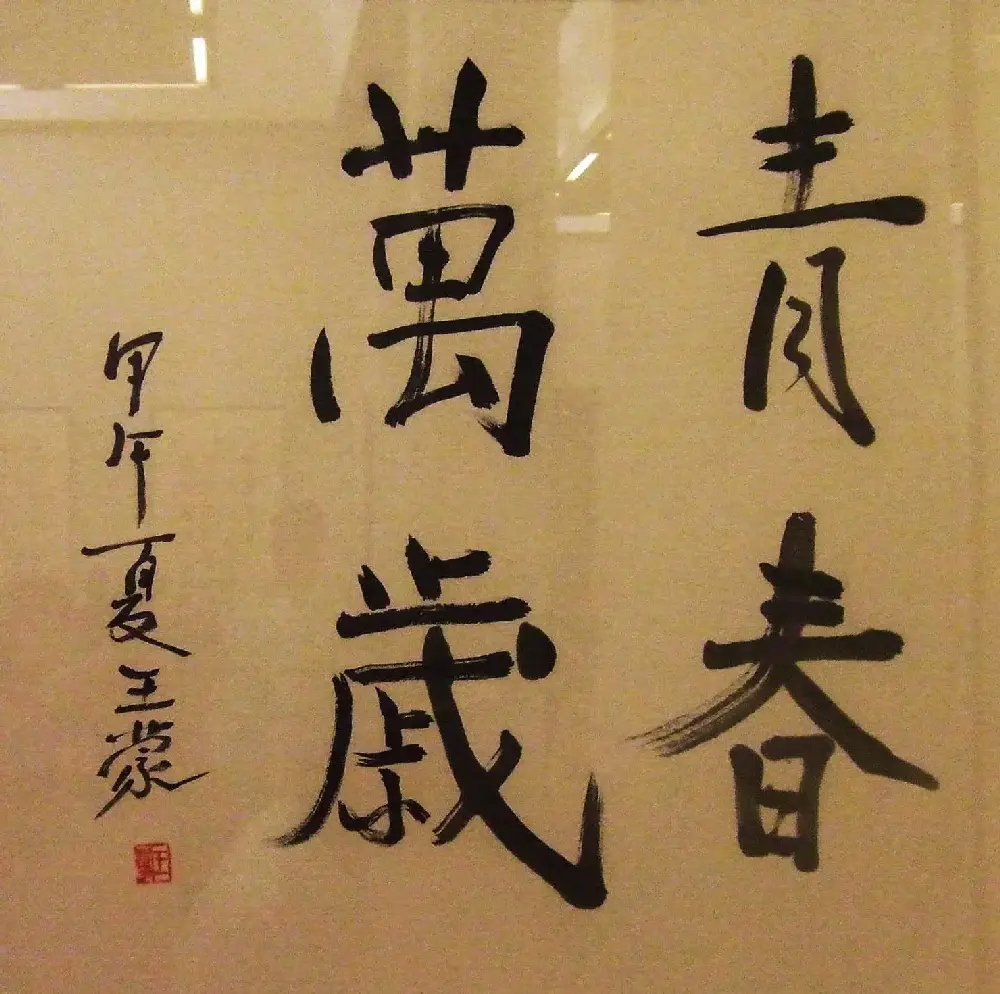 青春
萬歲
甲午夏王蒙